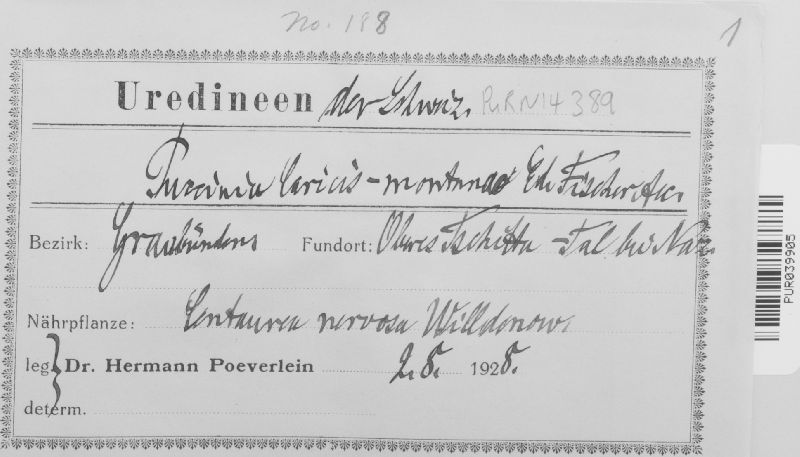 No. 188
1
Uredineen der Schweiz.
PURN14389
Puccinia Caricis-montanae Ed. Fischer
Bezirk: Graubünden Fundort: Oberes Tschitta-Tal bei
Nährpflanze: Centaurea nervosa Willdenow.
leg. Dr. Hermann Poeverlein 2. 8. 1928.
determ.
PUR039905